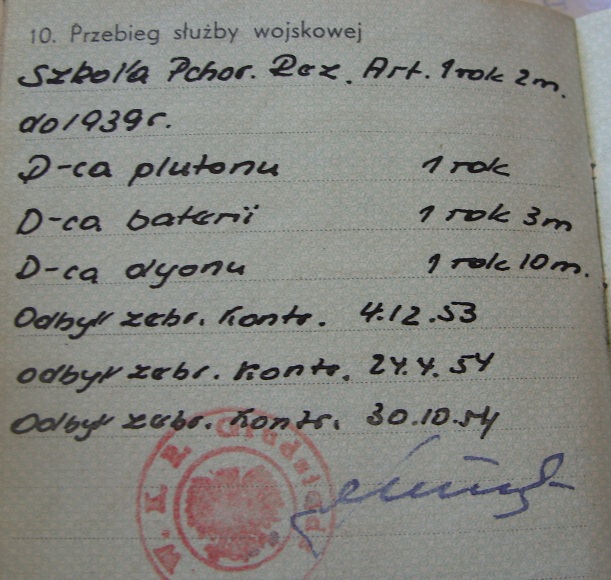 10. Przebieg służby wojskowej
Szkoła Pchor. Rez. Art. 1 rok 2 m.
do 1939 r.
D-ca plutonu 1 rok
D-ca baterii 1 rok 3 m
D-ca dyonu 1 rok 10 m.
Odbył zebr. Kontr. 4.12.53
odbył zebr. Kontr. 24.4.54
Odbył zebr. Kontr. 30.10.54
W. K. R.